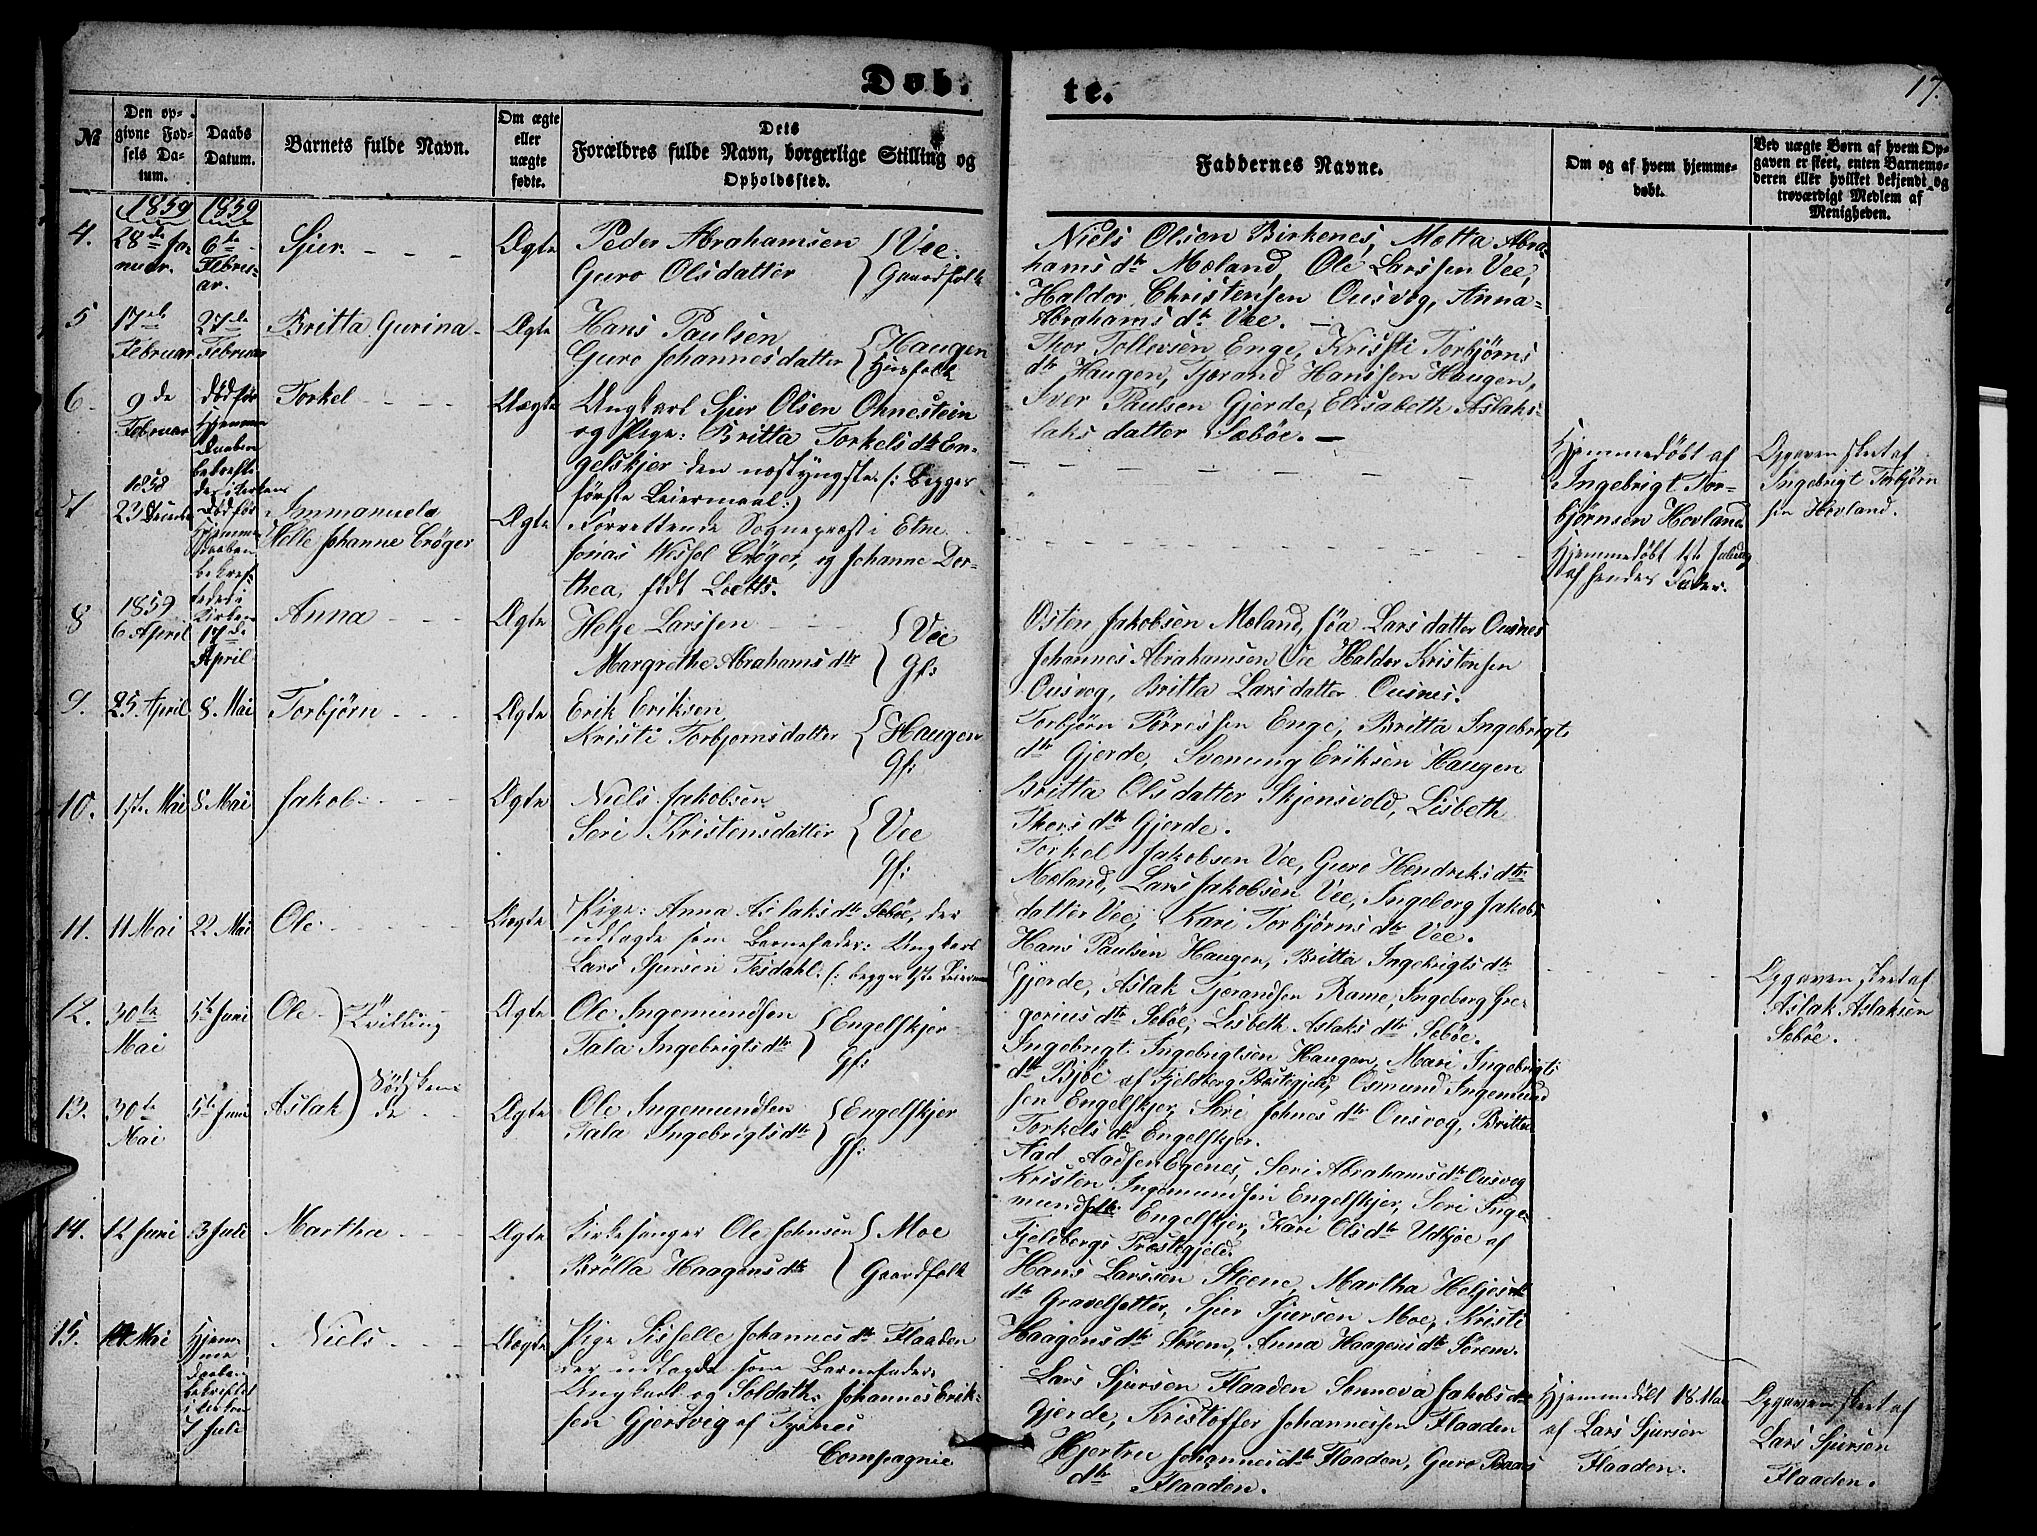 Døb-
te.
17.
№
Den op-
givne Fød-
sels Da-
tum.
Daabs
Datum.
Barnets fulde Navn.
Om ægte
eller
uægte
fødte.
Dets
Forældres fulde Navn, borgerlige Stilling og
Opholdssted.
Faddernes Navne.
Om og af hvem hjemme-
døbt.
Ved uægte Børn af hvem Op-
gaven er skeet, enten Barnemo-
deren eller hvilket bekjendt og
troværdigt Medlem af
Menigheden.
1859 1859
4.
28de Ja-
nuar.
6te
Febru-
ar.
Sjur.
Ægte
Peder Abrahamsen
Guro Olsdatter
Vee.
Gaardfolk
Niels Olsen Birkenes, Metta Abra-
hamsdtr Mæland, Ole Larssen Vee,
Haldor Christensen Ousvog, Anna
Abrahamsdtr Vee.
5
17de
Februar
27de
Februar
Britta Gurina
Ægte
Hans Paulsen
Guro Johannesdatter
Haugen
Huusfolk
Thor Tollevsen Enge, Kristi Torbjørns
dtr Haugen, Tjærand Hanssen Haugen,
Iver Paulsen Gjerde, Elisabeth Aslaks-
laksdatter Sæbøe.
6.
9de
Februar
Dødfør
Hjemme
Daaben
bekræfte
des i Kirken
Torkel
Uægte
Ungkarl Sjur Olsen Ohnestein
og Pige: Britta Torkelsdtr En-
gelskjer den næstyngste (: Begges
første Leiermaal:)
Hjemmedøbt af
Ingebrigt Tor-
bjørnsen Hovland
Opgaven skeet af
Ingebrigt Torbjørn
sen Hovland.
7.
1858
23 Decemb
Immanuela
Helle Johanne Crøger
Ægte
Forrettende Sognepræst i Etne
Jonas Wessel Crøger, og Johanne Dor-
thea, født Loetts.
Hjemmedøbt 1ste Juledag
af hendes Fader.
8
1859
6 April
17de
April
Anna
Ægte
Helje Larssen
Margrethe Abrahamsdtr
Vee
Gf:
Østen Jakobsen Mæland, Søa Larsdatter Ousnes
Johannes Abrahamsen Vee Haldor Kristensen
Ousvog, Britta Larsdatter Ousnes.
9.
25 April
8. Mai
Torbjørn
Ægte
Erik Eriksen
Kristi Torbjørnsdatter
Haugen
Gf:
Torbjørn Tørressen Enge, Britta Ingebrigts
dtr Gjerde, Svenung Eriksen Haugen
Britta Olsdatter Skjensvold, Lisbeth
Thorsdtr Gjerde.
10.
1ste Mai
8 Mai
Jakob
Ægte
Niels Jakobsen
Seri Kristensdatter
Vee
Gf:
Torkel Jakobsen Vee, Guro Hendriksdtr
Mæland, Lars Jakobsen Vee, Ingeborg Jakobs
datter Vee, Kari Torbjørnsdtr Vee.
11.
11 Mai
22 Mai
Ole
Uægte
Pige: Anna Aslaksdtr Sebøe, der
udlagde som Barnefader: Ungkarl
Lars Sjursen Tesdahl. (: begges 1ste Leiermaal
Hans Paulsen Haugen, Britta Ingebrigtsdtr
Gjerde, Aslak Tjerandsen Rame, Ingeborg Gre-
goriusdtr Sebøe, Lisbeth Aslaksdtr Sebøe.
Opgaven skeet af
Aslak Aslaksen
Sebøe.
12.
30te
Mai
5te Juni
Ole
Tvilling
Ægte
Ole Ingemundsen
Tala Ingebrigtsdtr
Engelskjer
Gf:
Ingebrigt Ingebrigtsen Haugen, Mari Ingebrigts
dtr Bjøe af Fjeldberg Præstegjeld, Osmund Ingemund
sen Engelskjer, Seri Johnesdtr Ousvog, Britta
Torkelsdtr Engelskjer.
13.
30te
Mai
5te Juni
Aslak
Sødsken-
de
Ægte
Ole Ingemundsen
Tala Ingebrigtsdtr
Engelskjer
Gf:
Aad Aadsen Egenes, Seri Abrahamsdtr Ousvog
Kristen Ingemundsen Engelskjer, Seri Inge-
mundsdtr Engelskjer, Kari Olsdtr Udbjøe af
Fjelbergs Præstegjeld.
14.
12 Juni
3 Juli
Martha
Ægte
Kirkesanger Ole Johnsen
Brølla Haagensdtr
Moe
Gaardfolk
Hans Larssen Steene, Martha Heljes
dtr Gravelsetter, Sjur Sjursen Moe, Kristi
Haagensdtr Sørem, Anna Haagensdtr Sørem.
15.
Mai
Hjem-
me
daaben
bekræftet
i Kirken
7 Juli
Niels
Uægte
Pige Sisselle Johannesdtr Flaaden
der udlagde som Barnefader
Ungkarl og Soldath: Johannes Erik-
sen Gjersvig af Tysnes
Compagnie
Lars Sjursen Flaaden Sønneva Jakobsdtr
Gjerde, Kristoffer Johannessen Flaaden
Hjertru Johannesdtr Flaaden, Guro Baars
dtr Flaaden.
Hjemmedøbt 18. Mai
af Lars Sjursen
Flaaden.
Opgaven skeet af
Lars Sjursen
Flaaden.